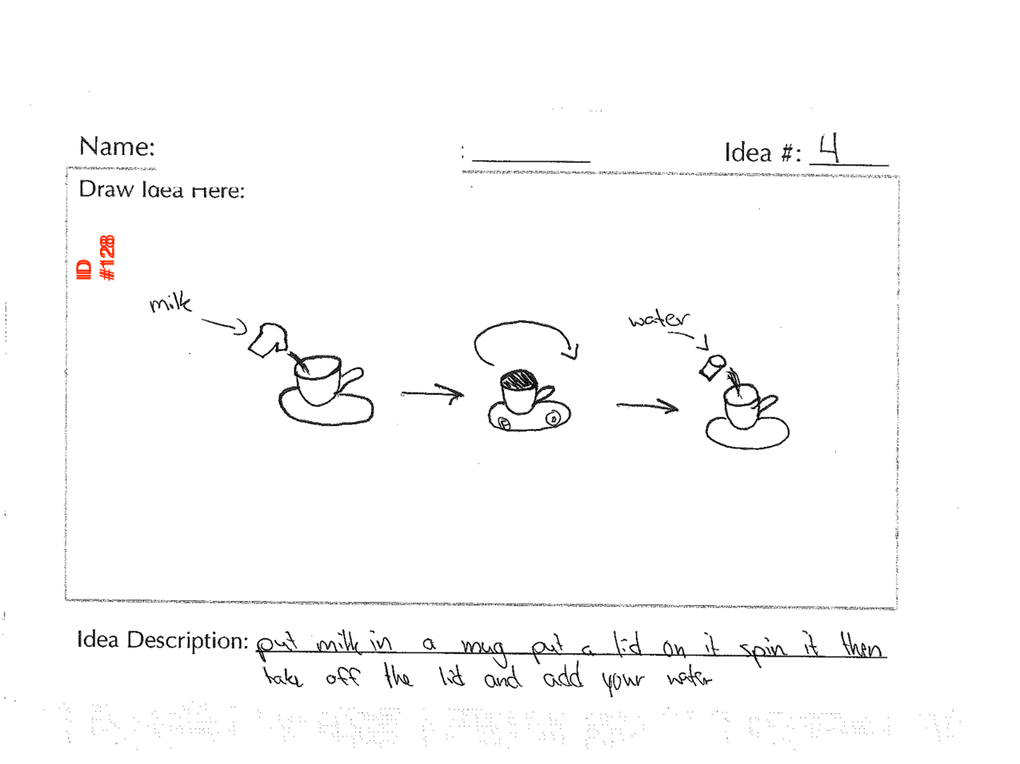 Name:
: Idea #: 4
Draw Idea Here:
ID
#128
milk
water
Idea Description: put milk in a mug put a lid on it spin it then
take off the lid and add your water